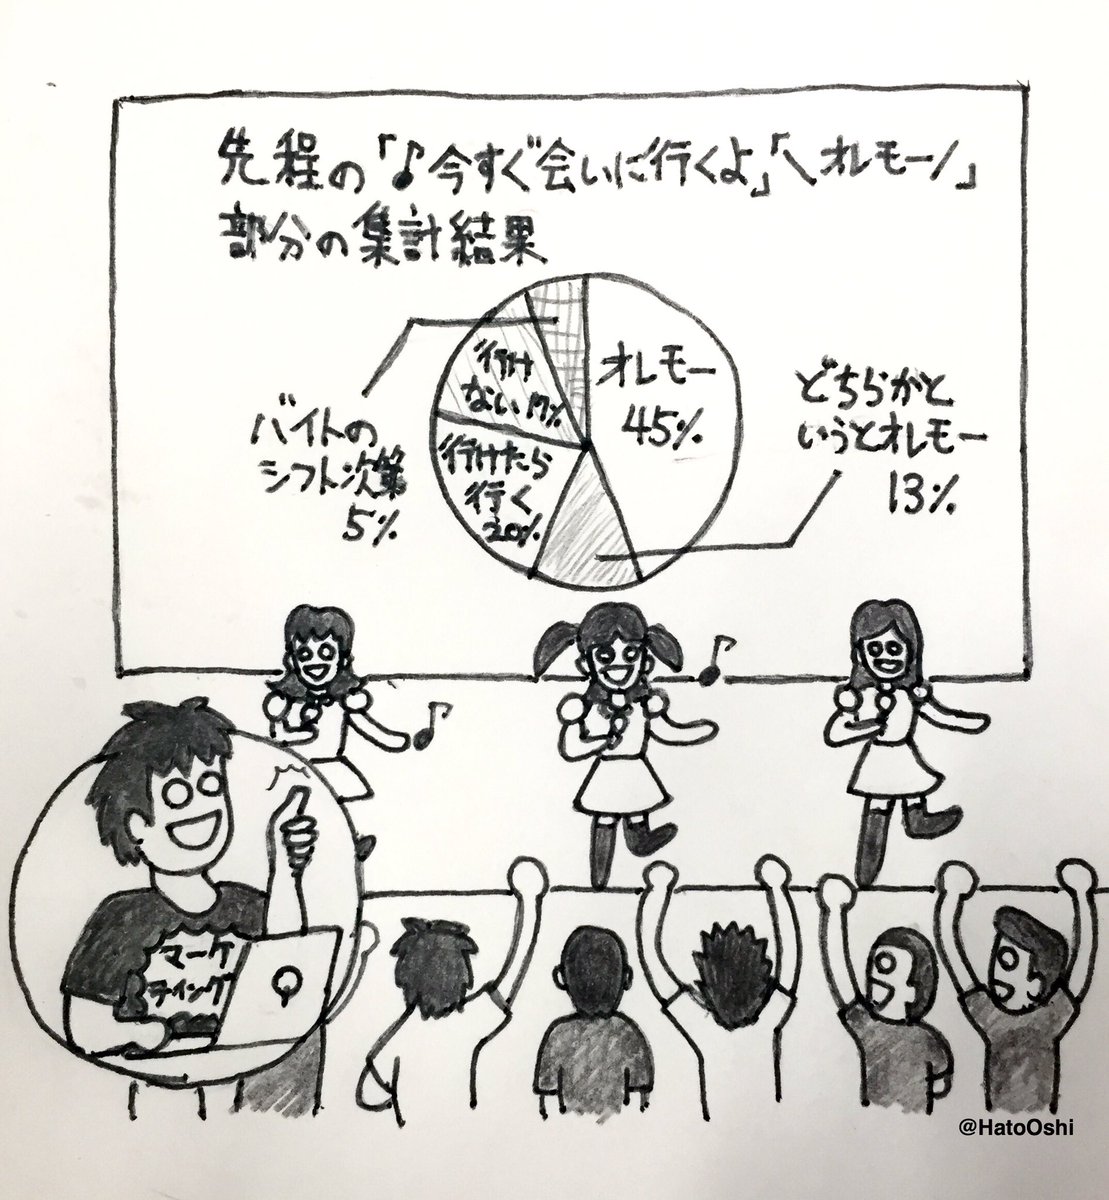 先程の「♪今すぐ会いに行くよ」「\オレモー/」
部分の集計結果
オレモー
45%
どちらかと
いうとオレモー
13%
行けたら
行く
20%
行け
ない17%
バイトの
シフト次第
5%
マーケ
ティング
@HatoOshi